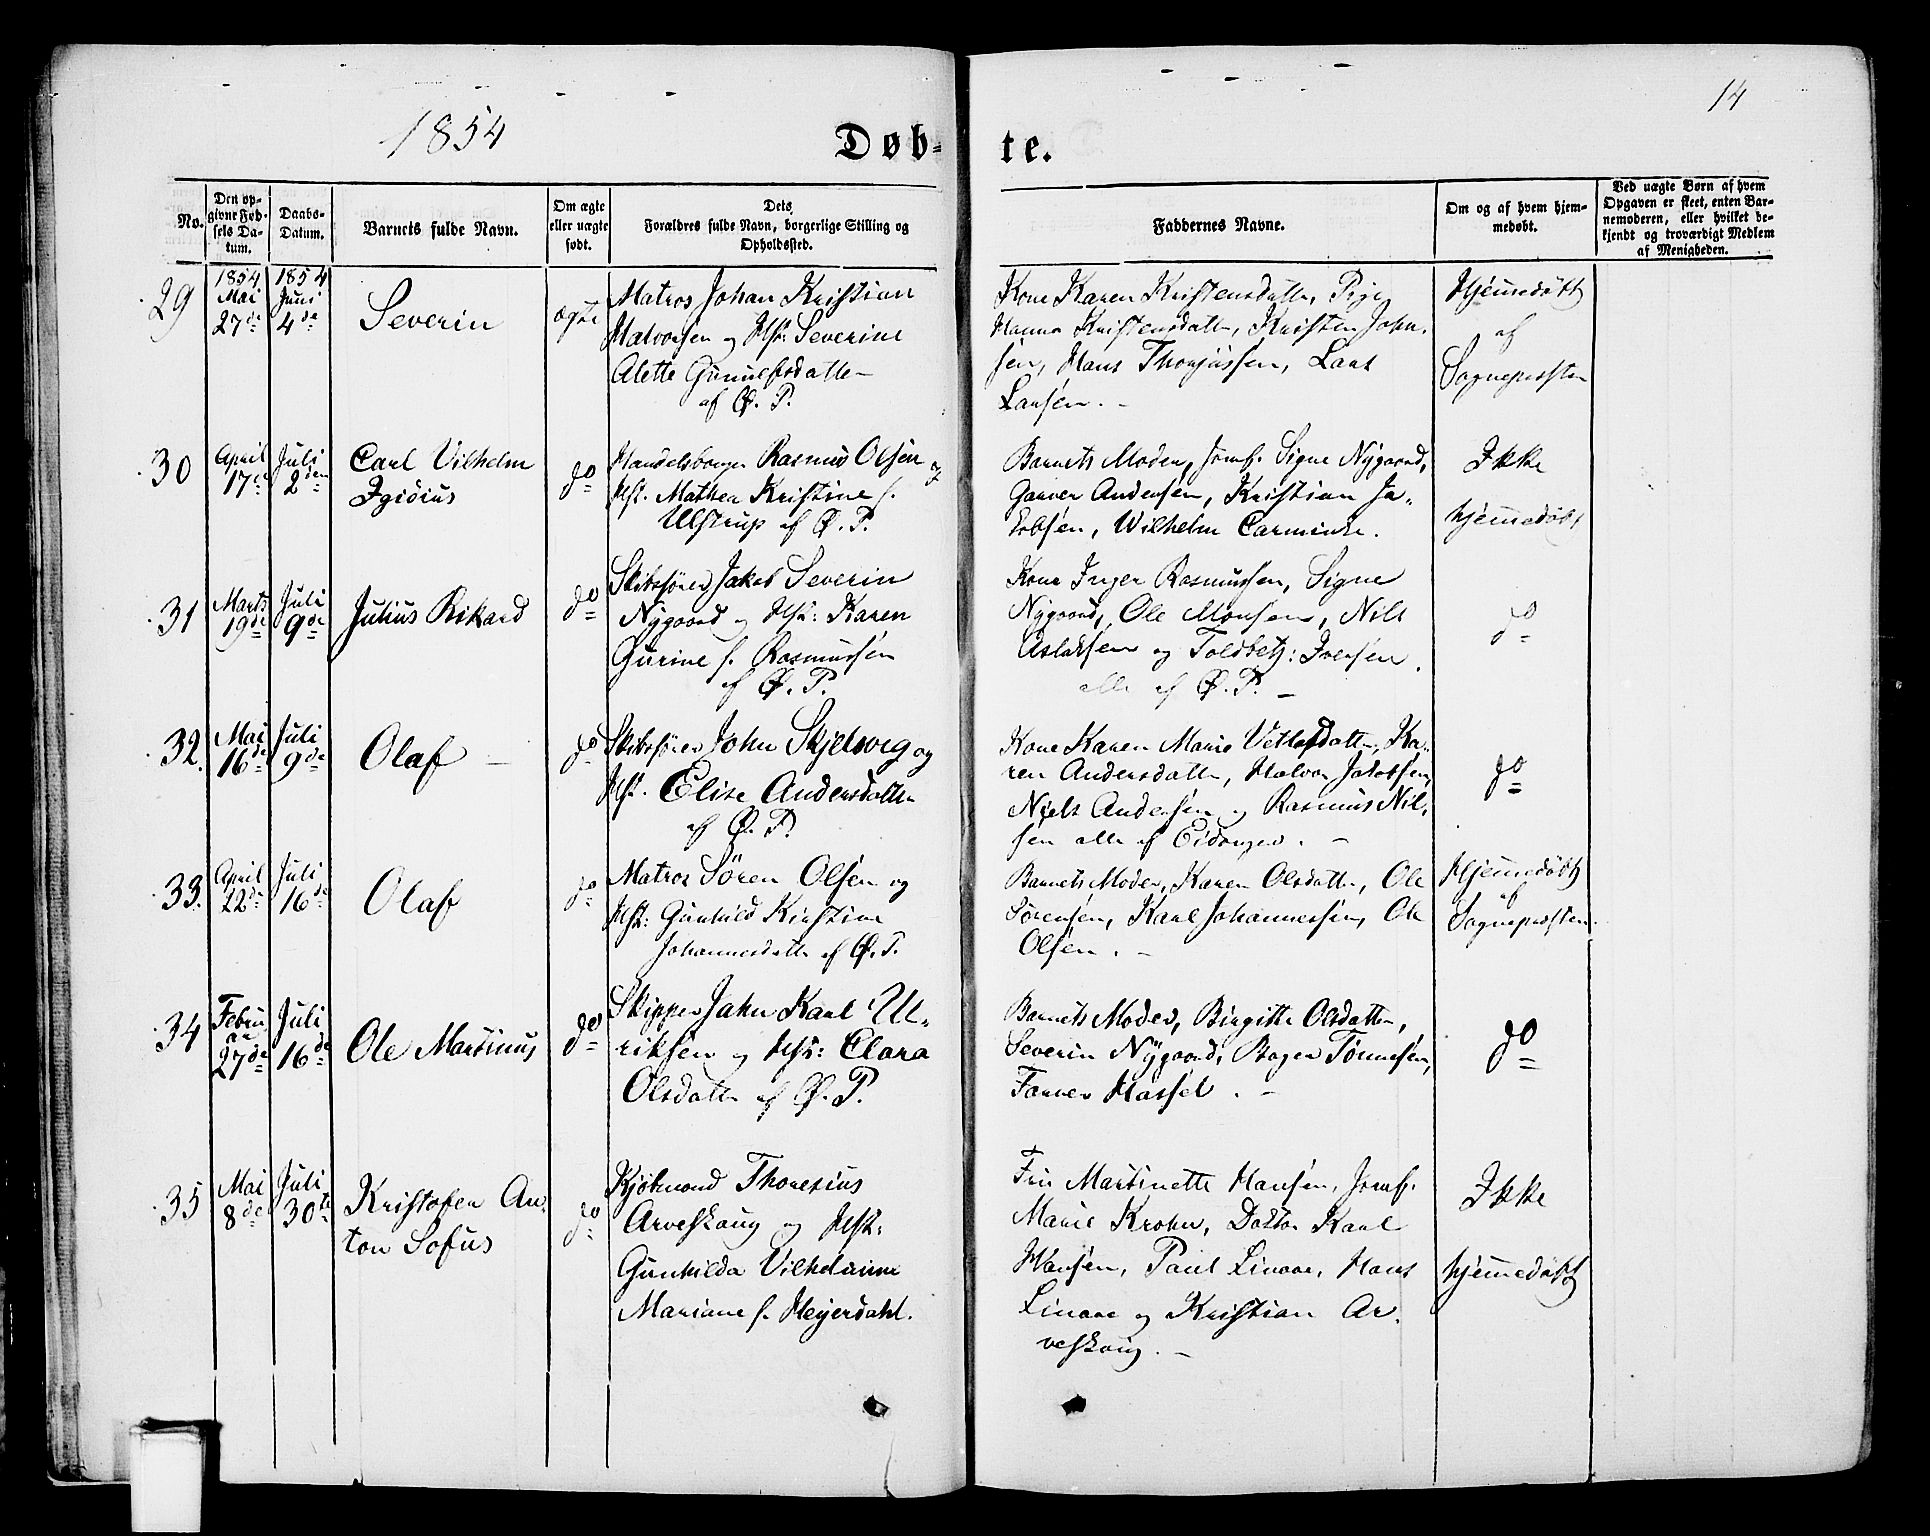 14
1854
Døb-
te.
No.
Den op-
givne Fød-
sels Da-
tum.
Daabs-
Datum.
Barnets fulde Navn.
Om ægte
eller uægte
født.
Dets
Forældres fulde Navn, borgerlige Stilling og
Opholdssted.
Faddernes Navne.
Om og af hvem hjem-
medøbt.
Ved uægte Børn af hvem
Opgaven er skeet, enten Bar-
nemoderen, eller hvilket be-
kjendt og troværdigt Medlem
af Menigheden.
29
1854
Mai
27de
1854
Juni
4de
Severin
ægte
Matros Johan Kristian
Halvorsen og Hst: Severine
Alette Gunulfsdatter
af Ø. P.
Kone Karen Kristensdatter, Pige
Hanna Kristensdatter, Kristen John-
sen, Hans Thomassen, Lars
Larsen. -
Hjemmedøbt
af
Sognepresten
30
April
17de
Juli
2den
Carl Vilhelm
Igidius
do
Handelsborger Rasmus Olsen og
Hst. Mathea Kristine f.
Ulstrup af Ø. P.
Barnets Moder, Jomf. Signe Nygaard,
Garver Andersen, Kristian Ja-
kobsen, Wilhelm Carminke.
Ikke
hjemmedøbt
31
Marts
19de
Juli
9de
Julius Rikard
do
Skibsfører Jakob Severin
Nygaard og Hst: Karen
Gurine f. Rasmussen
af Ø. P.
Kone Inger Rasmussen, Signe
Nygaard, Ole Monsen, Nils
Aslaksen og Toldbetj: Iversen.
alle af Ø. P. -
do
32.
Mai
16de
Juli
9de
Olaf -
do
Skibsfører John Skjelsvig og
Hst. Elise Andersdatter
af Ø. P.
Kone Karen Marie Vetlesdatter, Ka-
ren Andersdatter, Halvor Jakobsen,
Niels Andersen og Rasmus Nil-
sen alle af Eidanger. -
do
33.
April
22de
Juli
16de
Olaf
do
Matros Sören Olsen og
Hst: Gunhild Kirstine
Johannesdatter af Ø. P.
Barnets Moder, Karen Olsdatter, Ole
Sörensen, Karl Johannessen, Ole
Olsen. -
Hjemmedøbt
af
Sognepresten
34
Febru
ar
27de
Juli
16de
Ole Martinus
do
Skipper Jahn Karl Ul-
riksen og Hst: Clara
Olsdatter af Ø. P.
Barnets Moder, Birgitte Olsdatter,
Severin Nygaard, Bager Tønnesen,
Farver Hassel. -
do
35
Mai
8de
Juli
30te
Kristofer An-
ton Sofus
do
Kjöbmand Thoresius
Arveskoug og Hst:
Gunhilda Vilhelmine
Mariane f. Heyerdahl.
Fru Martinette Hansen, Jomf.
Marie Krohn, Doktor Karl
Hansen, Paul Linaae, Hans
Linaae og Kristian Ar-
veskoug. -
Ikke
hjemmedøbt